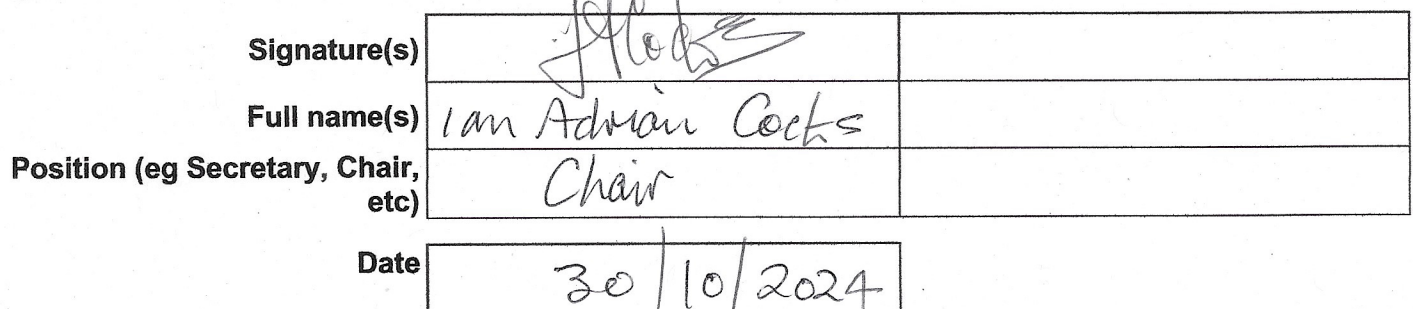 Signature(s)
Full name(s) Ian Adrian Cocks
Position (eg Secretary, Chair,
etc) Chair
Date 30/10/2024